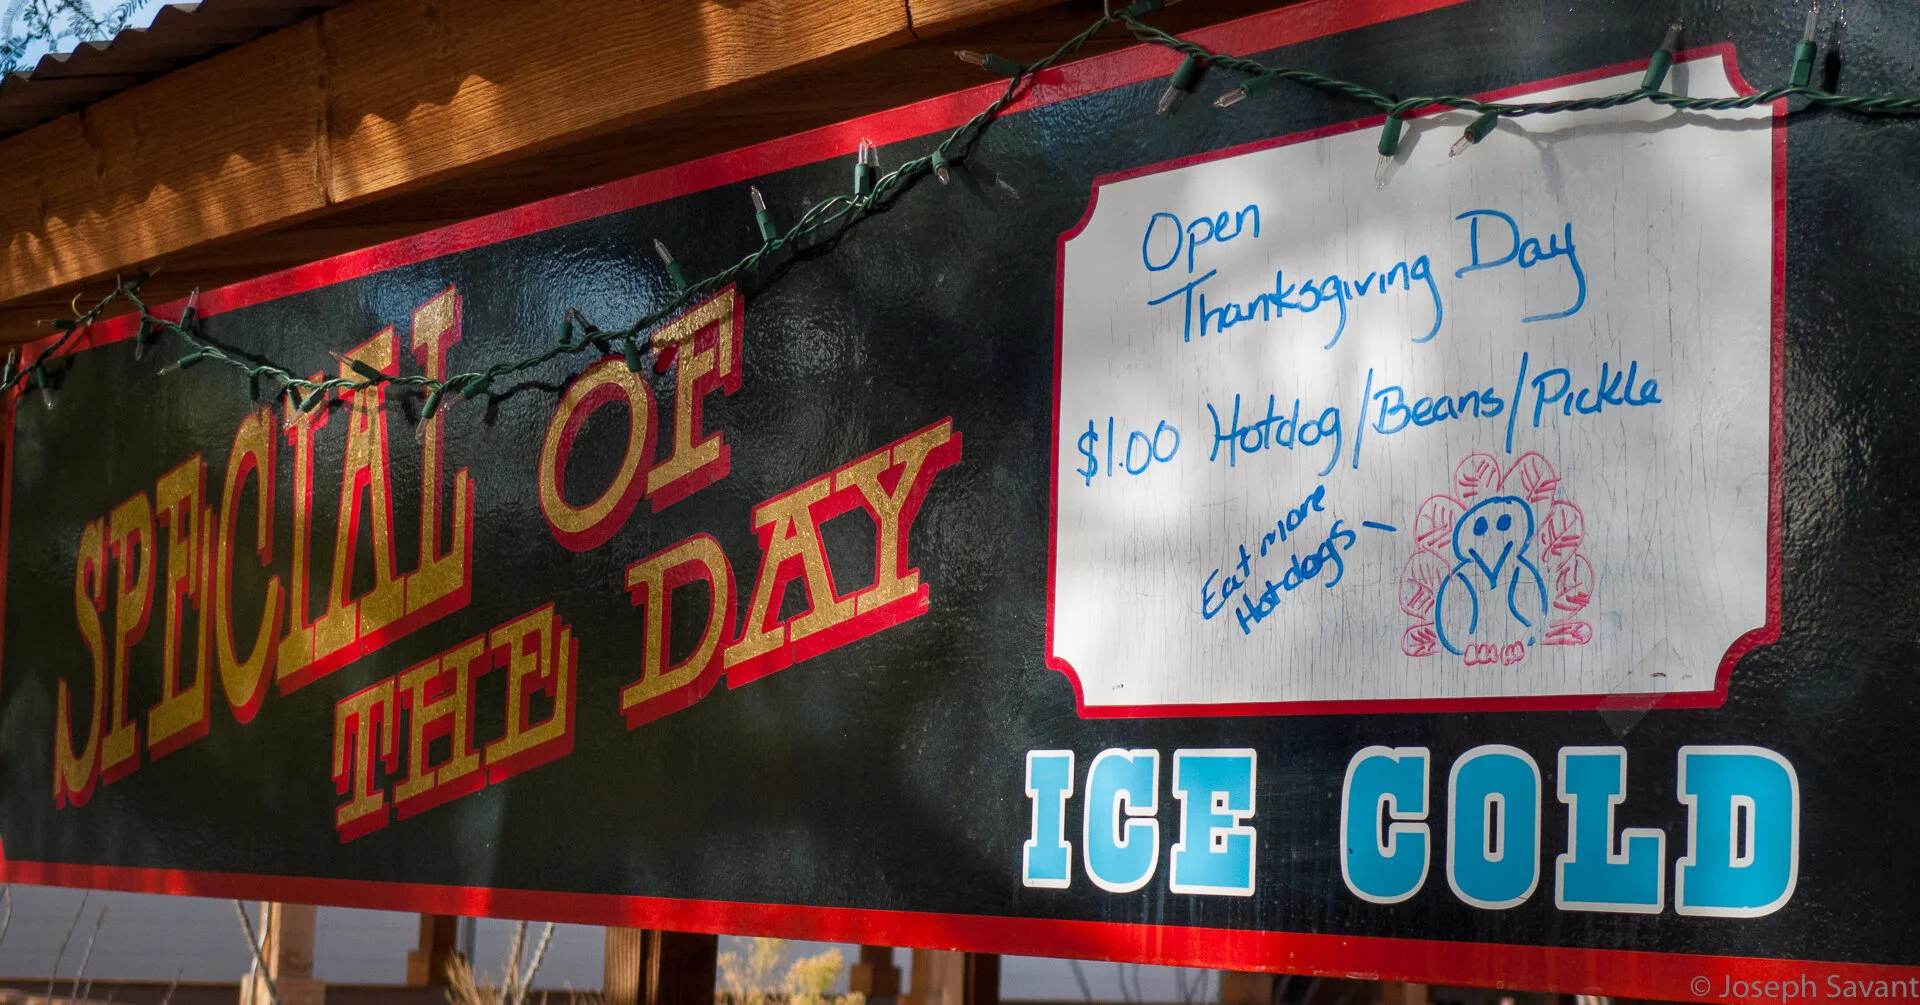 SPECIAL OF
THE DAY
Open
Thanksgiving Day
$1.00 Hotdog/Beans/Pickle
Eat more
Hotdogs
ICE COLD
© Joseph Savant